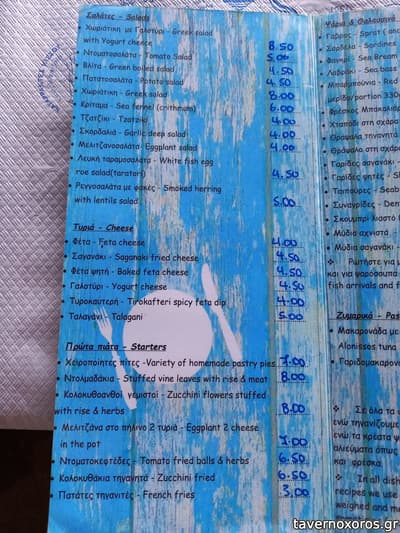 Σαλάτες - Salads
• Χωριάτικη με Γαλοτύρι - Greek salad
with Yogurt cheese 8.50
• Ντοματοσαλάτα - Tomato Salad 5.00
• Βλίτα - Green boiled salad 4.50
• Πατατοσαλάτα - Potato salad 4.50
• Χωριάτικη - Greek salad 8.00
• Κρίταμα - Sea fennel (crithmum) 6.00
• Τζατζίκι - Tzatziki 4.00
• Σκορδαλιά - Garlic deep salad 4.00
• Μελιτζανοσαλάτα - Eggplant salad 4.00
• Λευκή ταραμοσαλάτα - White fish egg
roe salad(tarators) 4.50
• Ρεγγοσαλάτα με φακές - Smoked herring
with lentils salad 5.00
Τυριά - Cheese
• Φέτα - Feta cheese 4.00
• Σαγανάκι - Saganaki fried cheese 4.50
• Φέτα ψητή - Baked feta cheese 4.50
• Γαλοτύρι - Yogurt cheese 4.50
• Τυροκαυτερή - Tirokafteri spicy feta dip 4.00
• Ταλαγάνι - Talagani 5.00
Πρώτα πιάτα - Starters
• Χειροποίητες πίτες -Variety of homemade pastry pies 7.00
• Ντολμαδάκια - Stuffed vine leaves with rise & meat 8.00
• Κολοκυθοανθοί γεμιστοί - Zucchini flowers stuffed
with rise & herbs 8.00
• Μελιτζάνα στο πήλινο 2 τυριά - Eggplant 2 cheese
in the pot 7.00
• Ντοματοκεφτέδες - Tomato fried balls & herbs 6.50
• Κολοκυθάκια τηγανητά - Zucchini fried 6.50
• Πατάτες τηγανιτές - French fries 3.00
Ψάρια & Θαλασσινά
• Γαύρος - Sprat ( an
• Σαρδέλα - Sardines
• Φαγκρί - Sea Bream
• Λαβράκι - Sea bass
• Μπαρμπούνια - Red
μερίδα/portion 330g
• Φρέσκος Μπακαλιάρ
• Χταπόδι στη σχάρα
• Θράψαλα τηγανητά
• Θράψαλο στη σχάρ
• Γαρίδες σαγανάκι -
• Γαρίδες ψητές - Sh
• Ταπουρες - Seab
• Συναγρίδες - Den
• Σκουμπρί λιαστό
• Μύδια αχνιστά
• Μύδια σαγανάκι -
❖ Ρωτήστε για
και για ψαρόσουπα
fish arrivals and f
Ζυμαρικά - Pas
• Μακαρονάδα με
• Alonissos tuna
• Γαριδομακαρον
❖ Σε όλα τα
ενώ τηγανίζουμε
ενώ τα κρέατα ψ
αλιεύματα όπως
και φρέσκα.
❖ In all dish
recipes we use
weighed and me
tavernoxoros.gr